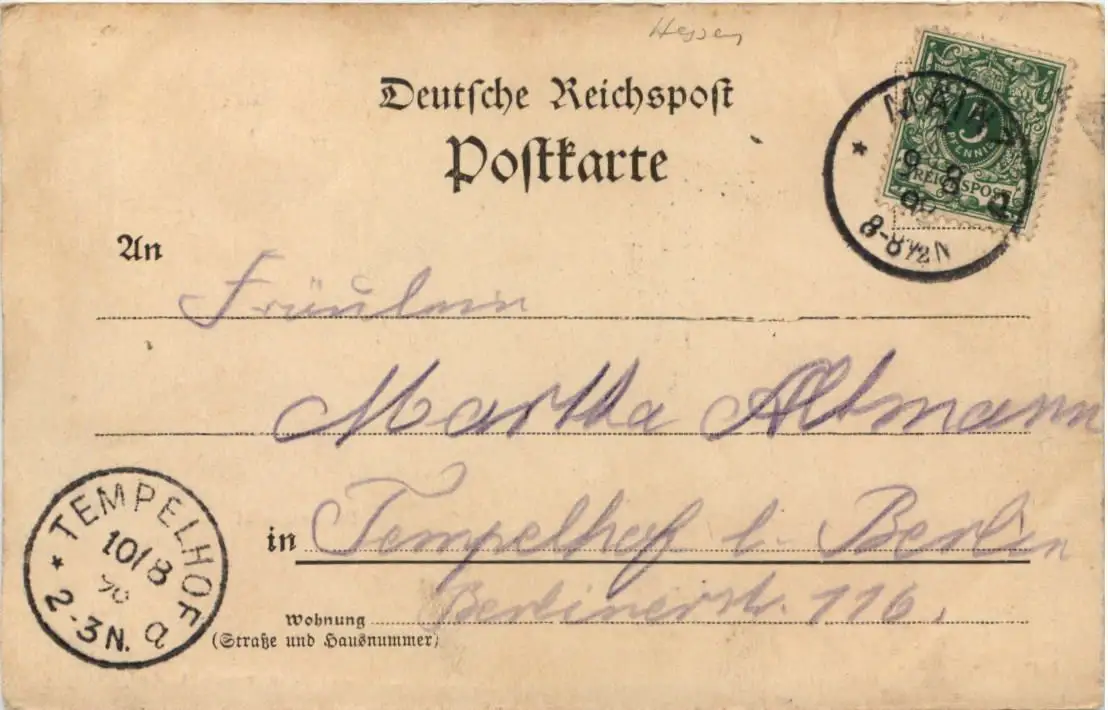 Hessen
Deutsche Reichspost
Postkarte
5
PFENNIG
REICHSPOST
MAINZ
9 8
8-8½N
An
Fräulein
Martha Altmann
in Tempelhof b. Berlin
Wohnung Berlinerstr. 116.
(Straße und Hausnummer)
TEMPELHOF
10/8
2-3N. a